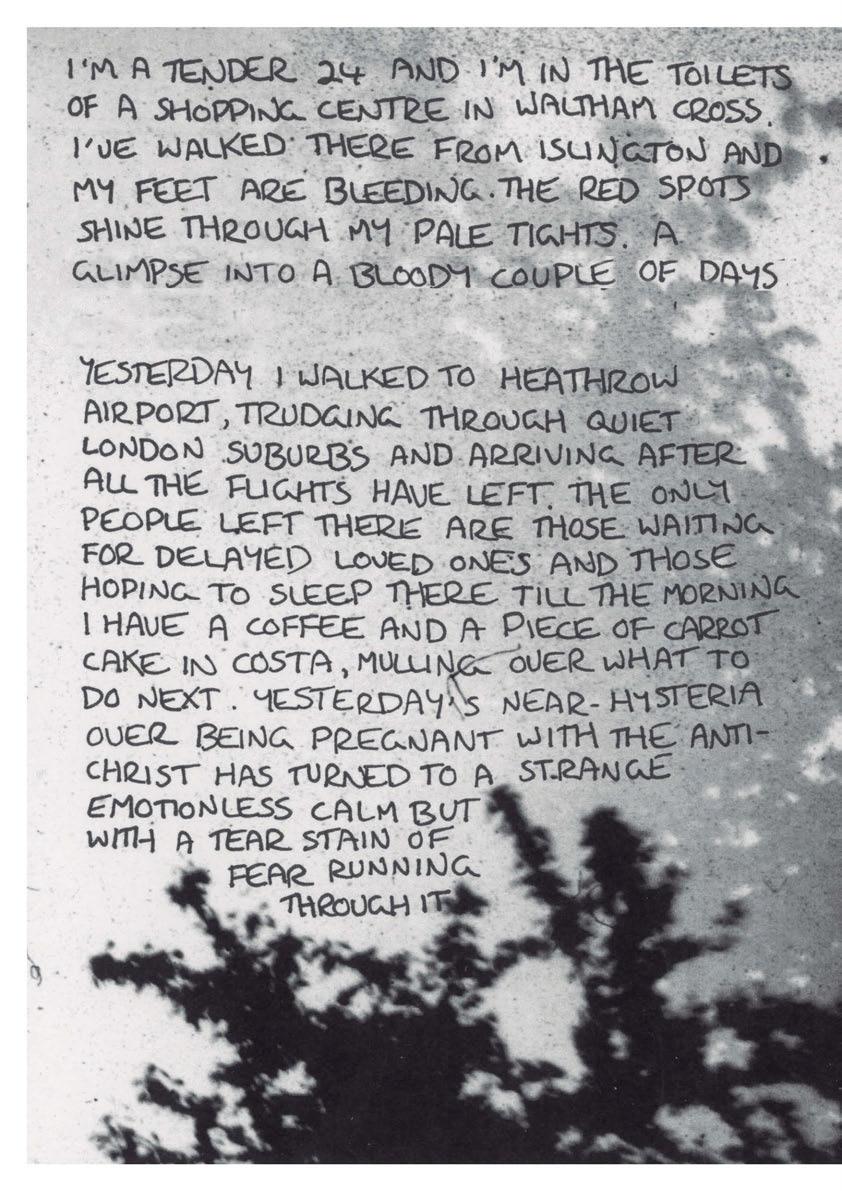 I'M A TENDER 24 AND I'M IN THE TOILETS
OF A SHOPPING CENTRE IN WALTHAM CROSS.
I'VE WALKED THERE FROM ISLINGTON AND
MY FEET ARE BLEEDING. THE RED SPOTS
SHINE THROUGH MY PALE TIGHTS. A
GLIMPSE INTO A BLOODY COUPLE OF DAYS
YESTERDAY I WALKED TO HEATHROW
AIRPORT, TRUDGING THROUGH QUIET
LONDON SUBURBS AND ARRIVING AFTER
ALL THE FLIGHTS HAVE LEFT. THE ONLY
PEOPLE LEFT THERE ARE THOSE WAITING
FOR DELAYED LOVED ONES AND THOSE
HOPING TO SLEEP THERE TILL THE MORNING
I HAVE A COFFEE AND A PIECE OF CARROT
CAKE IN COSTA, MULLING OVER WHAT TO
DO NEXT. YESTERDAY'S NEAR-HYSTERIA
OVER BEING PREGNANT WITH THE ANTI-
CHRIST HAS TURNED TO A STRANGE
EMOTIONLESS CALM BUT
WITH A TEAR STAIN OF
FEAR RUNNING
THROUGH IT